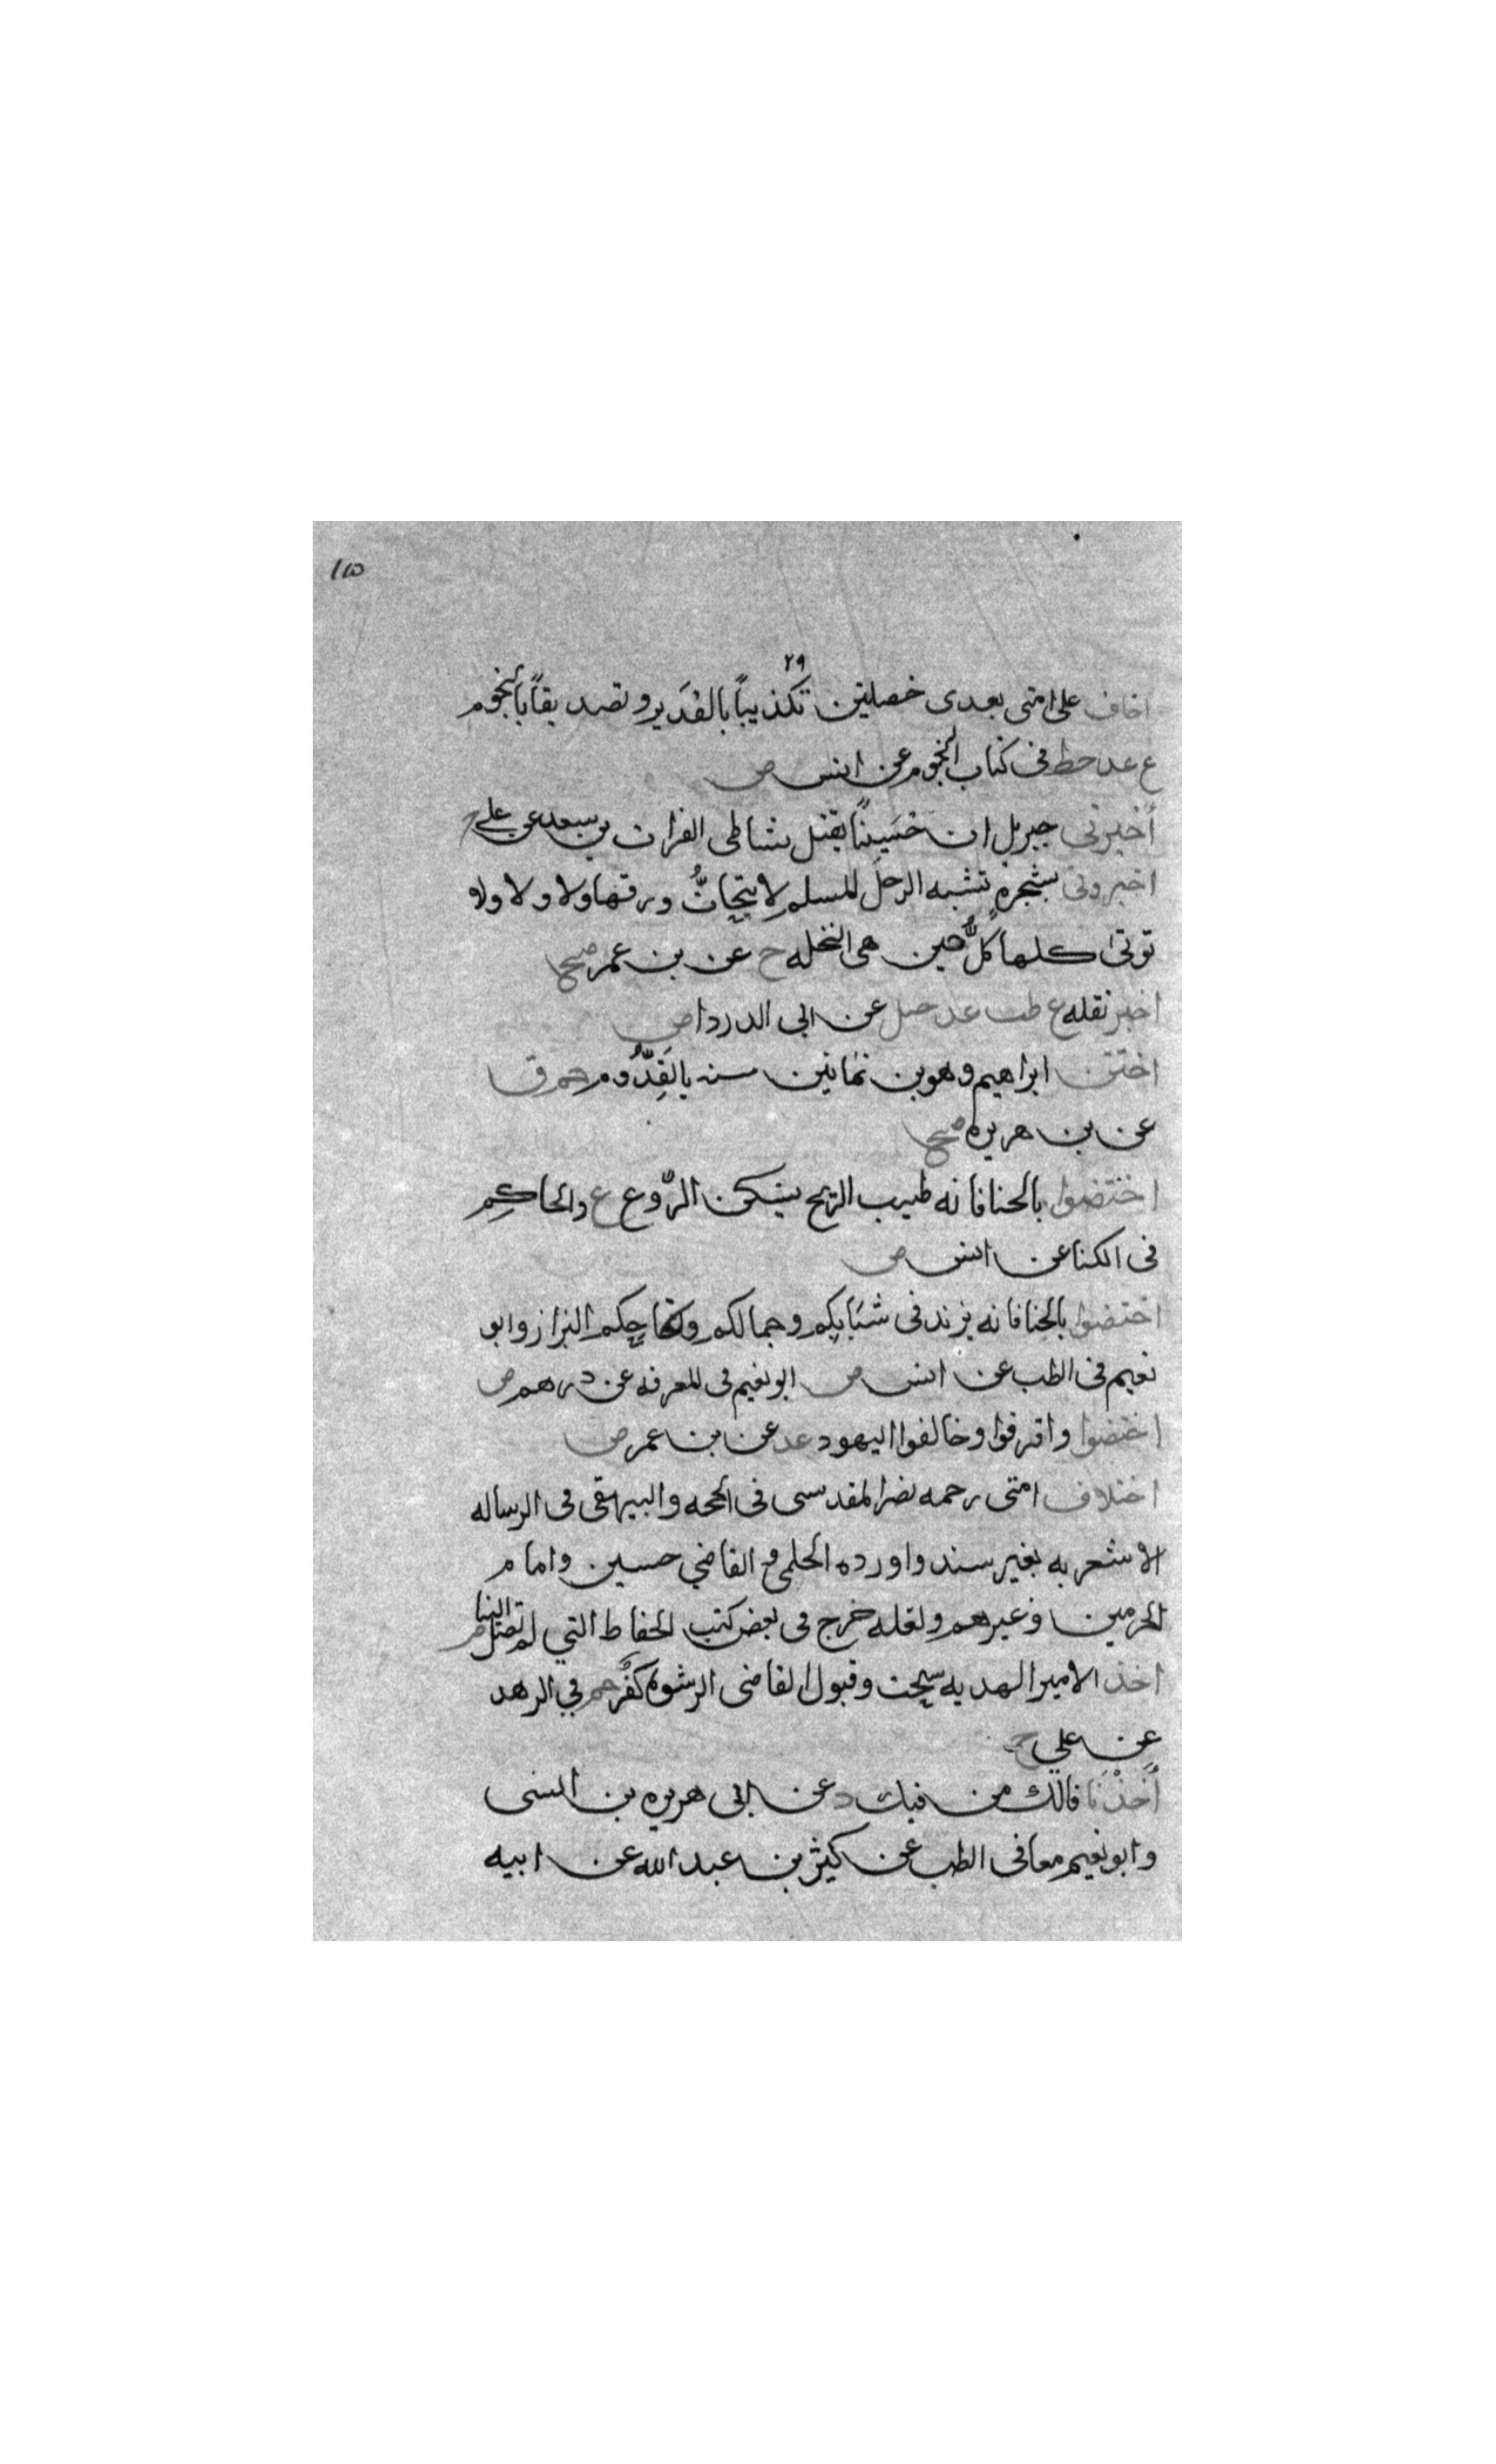 ١٥
٢٩
اخاف على امتى بعدى خصلتين تكذيباً بالقَدَر وتصديقاً بالنجوم
ع عد خط فى كتاب النجوم عن انس ض
أخبرنى جبريل ان حُسَيناً يقتل بشاطى الفرات بن سعد عن على ح
اخبرونى بشجرهٍ تشبه الرجل المسلم لا يتحاتُّ ورقها ولا ولا ولا
توتى اكلها كلَّ حين هى النخله خ عن بن عمر صح
اخبر تقله ع طب عد حل عن ابى الدردا ض
اختتن ابراهيم وهو بن ثمانين سنه بالقدّوم حم ق
عن بن هريره صح
اختضبوا بالحنا فانه طيب الريح يسكن الرَّوع ع والحاكم
فى الكنا عن انس ض
اختضبوا بالحنا فانه يزيد فى شبابكم وجمالكم ونكاحكم البزاز وابو
نعيم فى الطب عن انس ض ابو نعيم فى المعرفه عن درهم ض
اختضبوا وافرقوا وخالفوا اليهود عد عن بن عمر ض
اختلاف امتى رحمه نصر المقدسى فى الحجه والبيهقى فى الرساله
الاشعريه بغير سند واورده الحلمى و القاضي حسين وامام
الحرمين وغيرهم ولعله خرج فى بعض كتب الحفاظ التي لم تصل الينا ض
اخذ الامير الهديه سحت وقبول القاضى الرشوه كفر حم في الزهد
عن علي ح
أخذْنَا فالك من فيك د عن ابى هريره بن السنى
وابو نعيم معا فى الطب عن كثير بن عبد الله عن ابيه